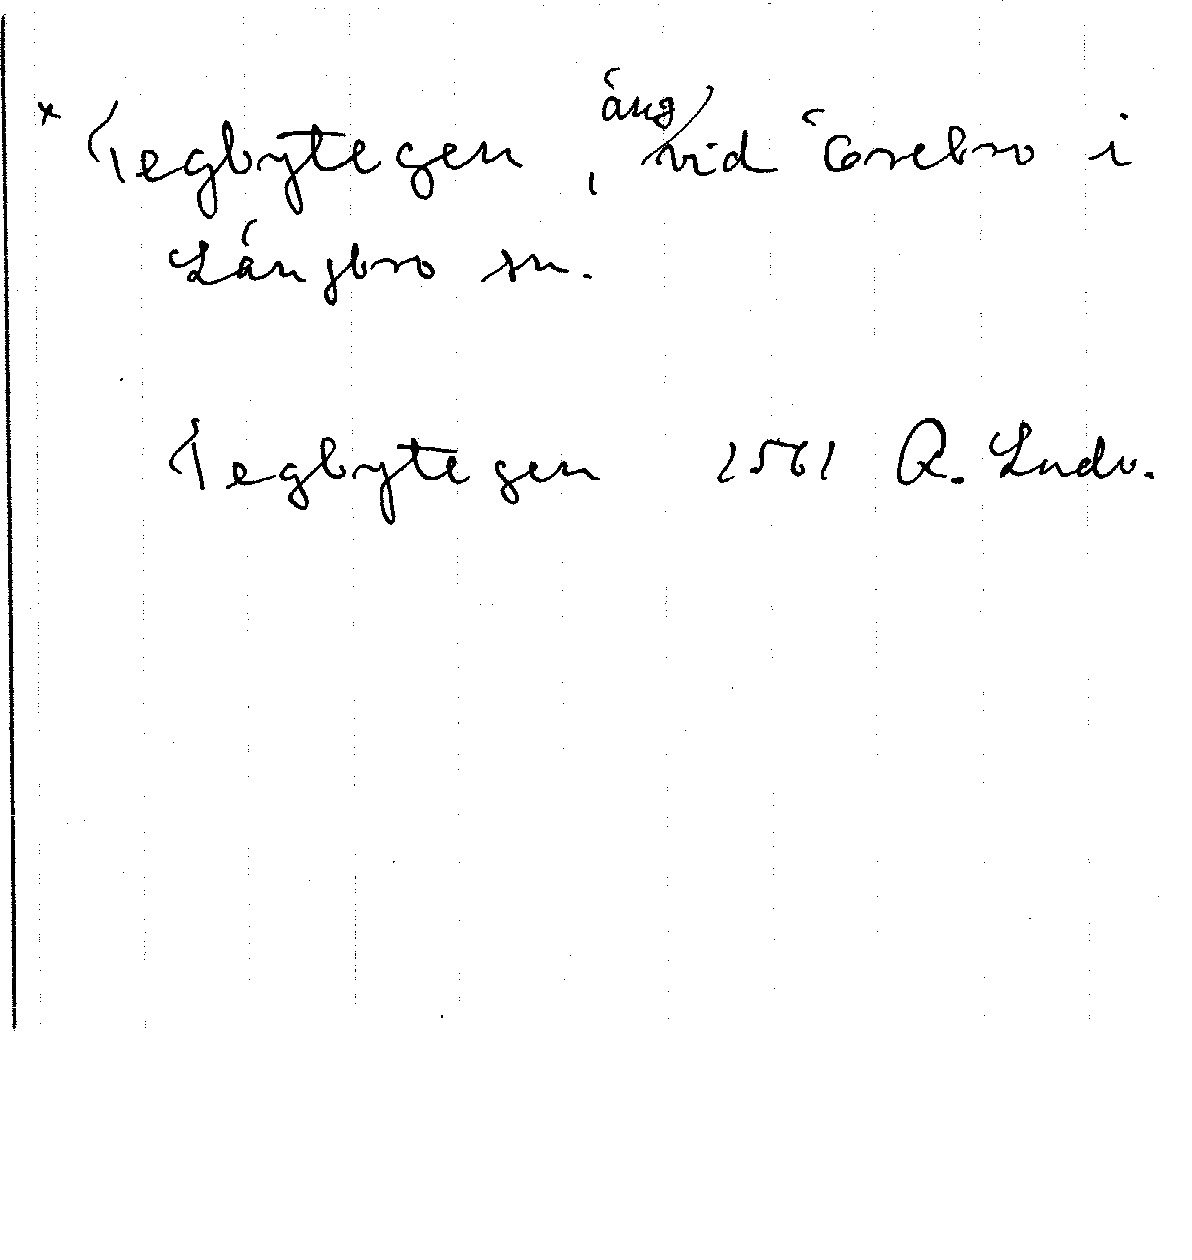 × Tegbytegen, äng vid Örebro i
Längbro sn.
Tegbytegen 1561 Q. Lndv.